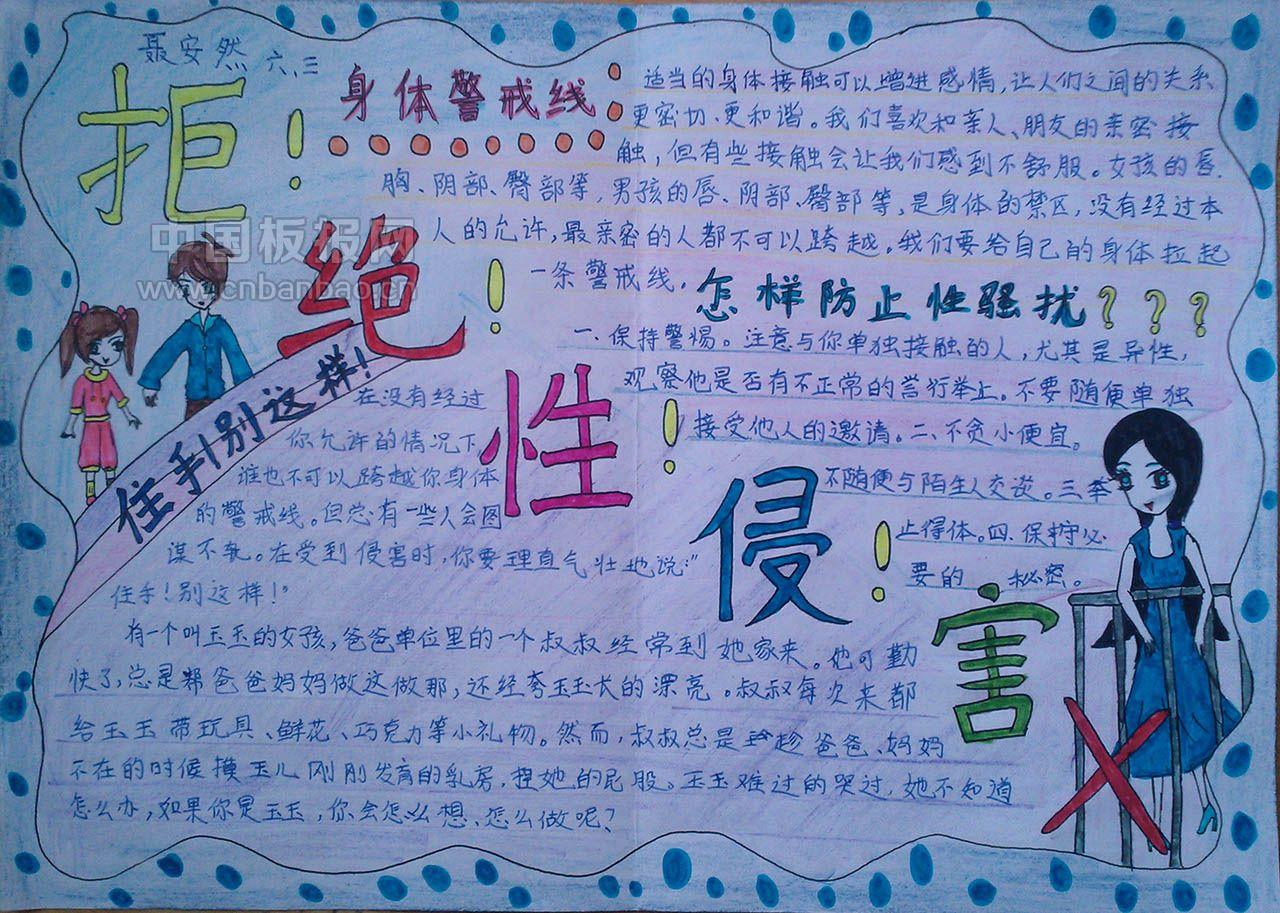 聂安然 六、三
拒！
绝！
性！
侵！
害
身体警戒线
适当的身体接触可以增进感情，让人们之间的关系
更密切、更和谐。我们喜欢和亲人、朋友的亲密接
触，但有些接触会让我们感到不舒服。女孩的唇、
胸、阴部、臀部等，男孩的唇、阴部、臀部等，是身体的禁区，没有经过本
人的允许，最亲密的人都不可以跨越。我们要给自己的身体拉起
一条警戒线。
怎样防止性骚扰？？？
一、保持警惕。注意与你单独接触的人，尤其是异性，
观察他是否有不正常的言行举止。不要随便单独
接受他人的邀请。二、不贪小便宜。
不随便与陌生人交谈。三、举
止得体。四、保守必
要的 秘密。
住手！别这样！
在没有经过
你允许的情况下
谁也不可以跨越你身体
的警戒线。但总有一些人会图
谋不轨。在受到侵害时，你要理直气壮地说“
住手！别这样！”
有一个叫玉玉的女孩，爸爸单位里的一个叔叔经常到她家来。他可勤
快了，总是帮爸爸妈妈做这做那，还经夸玉玉长的漂亮。叔叔每次来都
给玉玉带玩具、鲜花、巧克力等小礼物。然而，叔叔总是趁爸爸、妈妈
不在的时候摸玉儿刚刚发育的乳房，捏她的屁股。玉玉难过的哭过，她不知道
怎么办，如果你是玉玉，你会怎么想、怎么做呢？
中国板报网
www.cnbanbao.cn